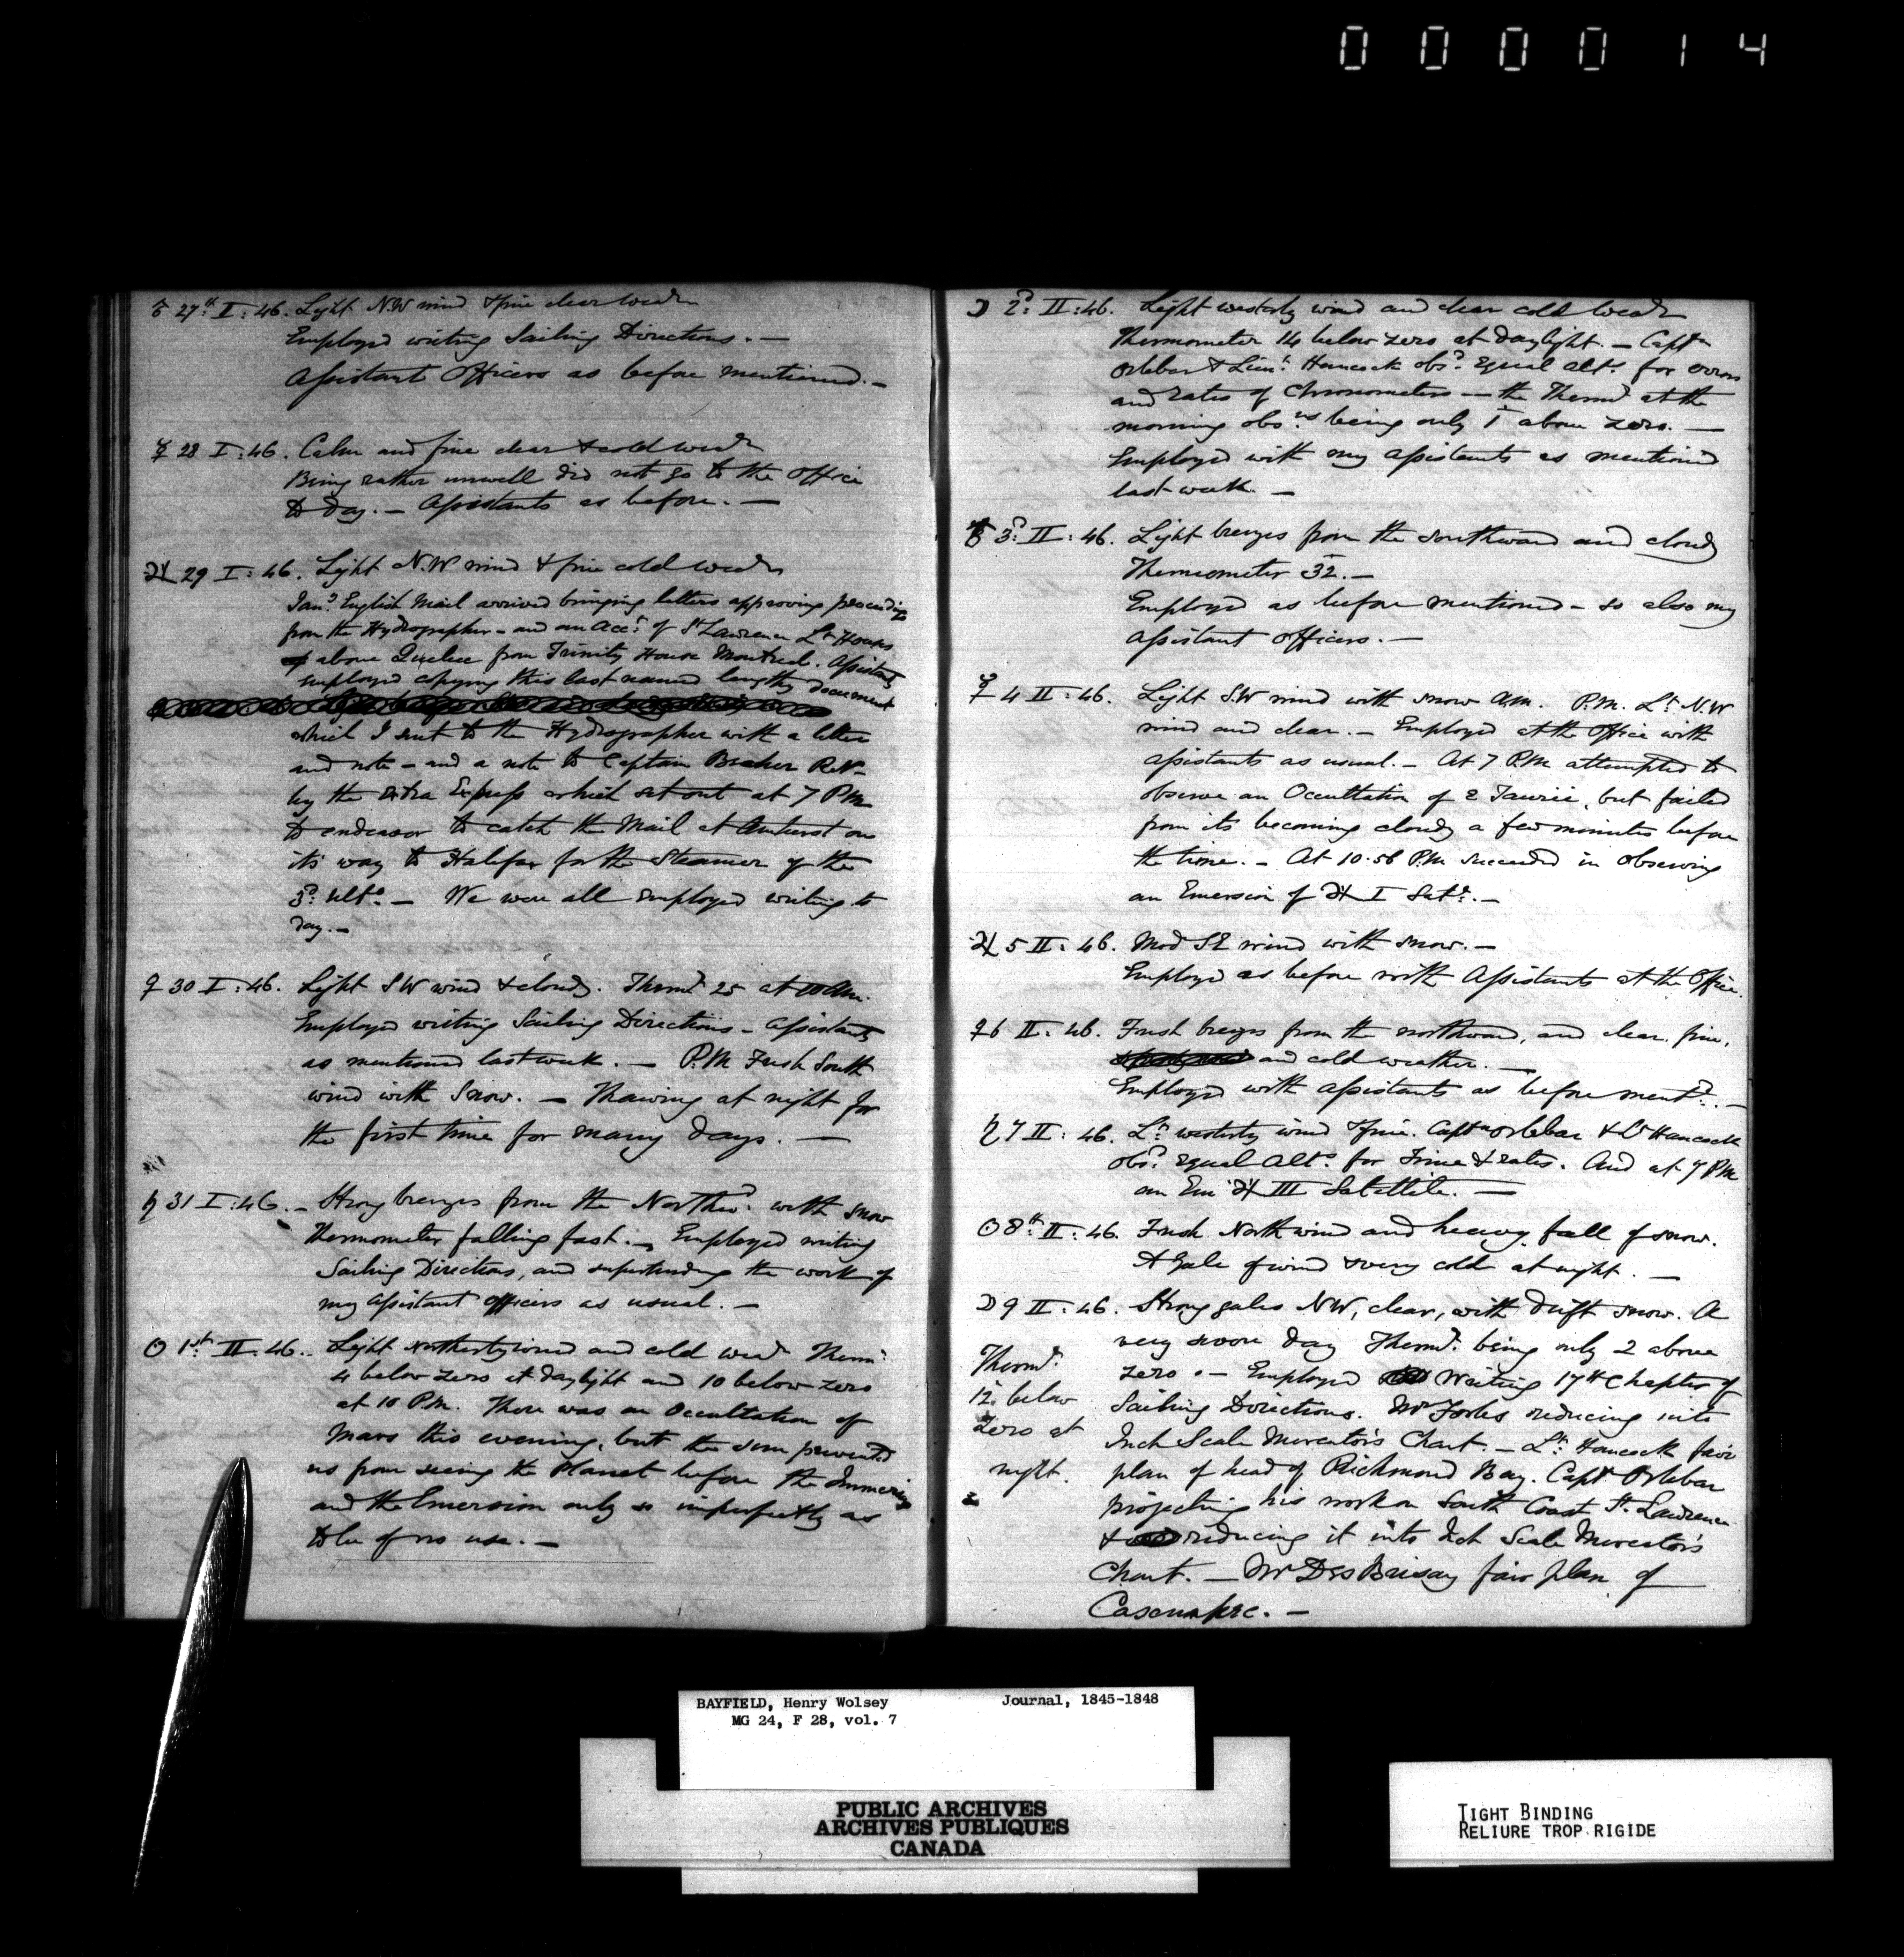 000014
♂ 27th I: 46. Light N.W wind & fine clear weath
Employed writing Sailing Directions. —
Assistant Officers as before mentioned. —
☿ 28 I: 46. Calm and fine clear & cold weath
Being rather unwell did not go to the Office
to day. — Assistants as before. —
♃ 29 I: 46. Light N.W wind & fine cold weath
Jany English Mail arrived bringing letters approving proceedings
from the Hydrographer — and an Acct of St Lawrence Lt Houses
above Quebec from Trinity House Montreal. Assistants
employed copying this last named lengthy document
which I sent to the Hydrographer with a letter
and note — and a note to Captain Becher R.N —
by the Extra Express which set out at 7 PM
to endeavor to catch the Mail at Amherst on
its way to Halifax for the Steamer of the
3d ulto. — We were all employed writing to
day. —
♀ 30 I: 46. Light SW wind & cloudy. Thermr 25 at 10 Am.
Employed writing Sailing Directions — Assistants
as mentioned last week. — P.M Fresh South
wind with Snow. — Thawing at night for
the first time for many days. —
♄ 31 I: 46. — Strong breezes from the Northwd with snow
Thermometer falling fast. — Employed writing
Sailing Directions, and superintending the work of
my Assistant officers as usual. —
☉ 1st II: 46. Light Northerly wind and cold weath Thermr
4 below zero at daylight and 10 below zero
at 10 P.M. There was an Occultation of
Mars this evening, but the sun prevented
us from seeing the Planet before the Immersion
and the Emersion only so imperfectly as
to be of no use. —
☽ 2d II: 46. Light westerly wind and clear cold weath
Thermometer 14 below zero at daylight. — Captn
Orlebar & Lieut Hancock obsd Equal alts for errors
and rates of Chronometers — the Thermr at the
morning obsns being only 1 above zero. —
Employed with my Assistants as mentioned
last week. —
♂ 3d II: 46. Light breezes from the southward and cloudy
Thermometer 32. —
Employed as before mentioned — so also my
Assistant officers. —
☿ 4 II: 46. Light S.W wind with snow A.M. P.M. Lt N.W
wind and clear. — Employed at the Office with
Assistants as usual. — At 7 P.M attempted to
observe an Occultation of ε Taurii, but failed
from its becoming cloudy a few minutes before
the time. — At 10.56 P.M succeeded in observing
an Emersion of ♃ I Satte. —
♃ 5 II: 46. Mod SE wind with snow. —
Employed as before with Assistants at the Office.
♀ 6 II: 46. Fresh breezes from the northward, and clear, fine,
and cold weather. —
Employed with Assistants as before mentd. —
♄ 7 II: 46. Lt westerly wind & fine. Captn Orlebar & Lt Hancock
obsd Equal Alts for Time & rates. And at 7 PM
an Em ♃ III Satellite. —
☉ 8th II: 46. Fresh North wind and heavy fall of snow.
A Gale of wind & very cold at night. —
☽ 9 II: 46. Strong gales NW, clear, with drift snow. A
very severe day Thermr being only 2 above
zero. — Employed Writing 17th Chapter of
Sailing Directions. Mr Forbes reducing into
Inch Scale Mercator's Chart. — Lt Hancock fair
plan of head of Richmond Bay. Captn Orlebar
projecting his work on South Coast St. Lawrence
& reducing it into Inch Scale Mercator's
Chart. — Mr DesBrisay fair plan of
Cascumpec. —
Thermr
12 below
zero at
night.
BAYFIELD, Henry Wolsey Journal, 1845-1848
MG 24, F 28, vol. 7
PUBLIC ARCHIVES
ARCHIVES PUBLIQUES
CANADA
TIGHT BINDING
RELIURE TROP RIGIDE